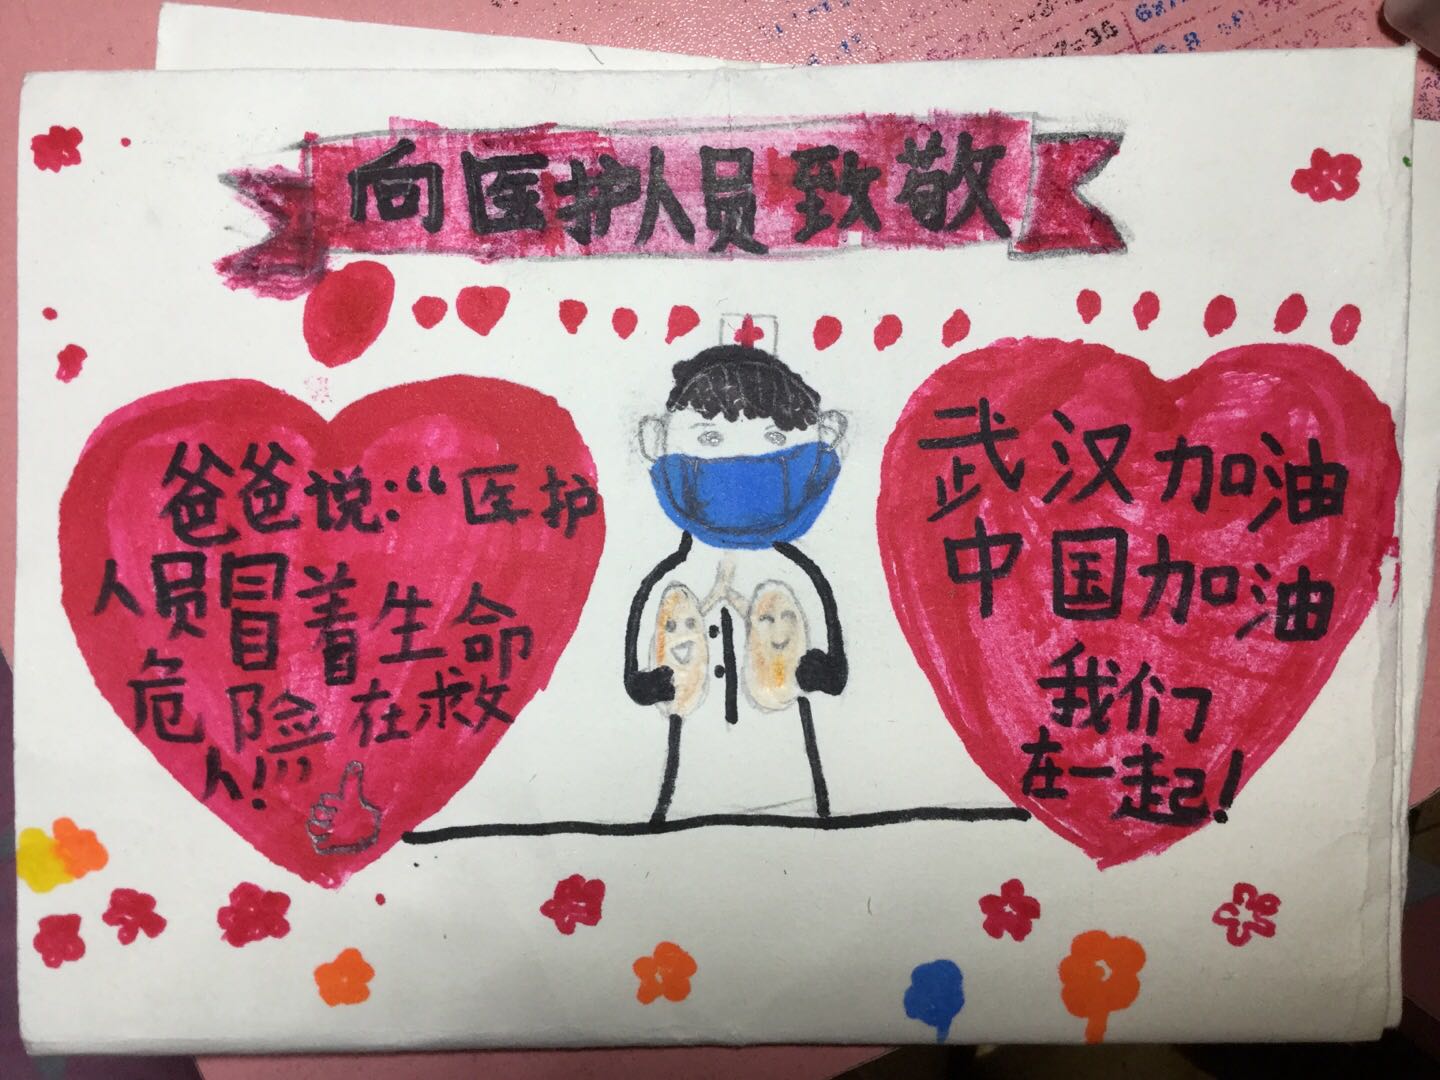 向医护人员致敬
爸爸说：“医护
人员冒着生命
危险在救
人！”
武汉加油
中国加油
我们
在一起！